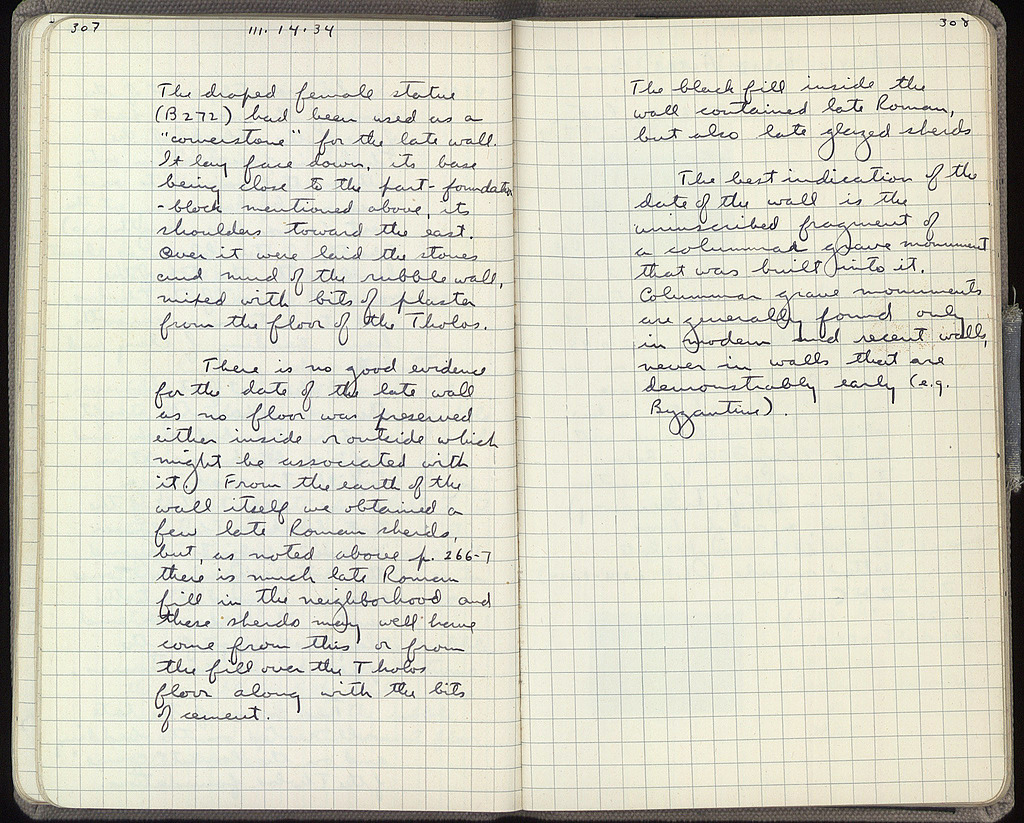 307
III.14.34
The draped female statue
(B272) had been used as a
"cornerstone" for the late wall.
It lay face down, its base
being close to the part-foundation
-block mentioned above, its
shoulders toward the east.
Over it were laid the stones
and mud of the rubble wall,
mixed with bits of plaster
from the floor of the Tholos.
There is no good evidence
for the date of the late wall
as no floor was preserved
either inside or outside which
might be associated with
it. From the earth of the
wall itself we obtained a
few late Roman sherds,
but, as noted above p. 266-7
there is much late Roman
fill in the neighborhood and
these sherds may well have
come from this or from
the fill over the Tholos
floor along with the bits
of cement.
308
The black fill inside the
wall contained late Roman,
but also late glazed sherds
The best indication of the
date of the wall is the
uninscribed fragment of
a columnar grave monument
that was built into it.
Columnar grave monuments
are generally found only
in modern and recent walls,
never in walls that are
demonstrably early (e.g.
Byzantine).